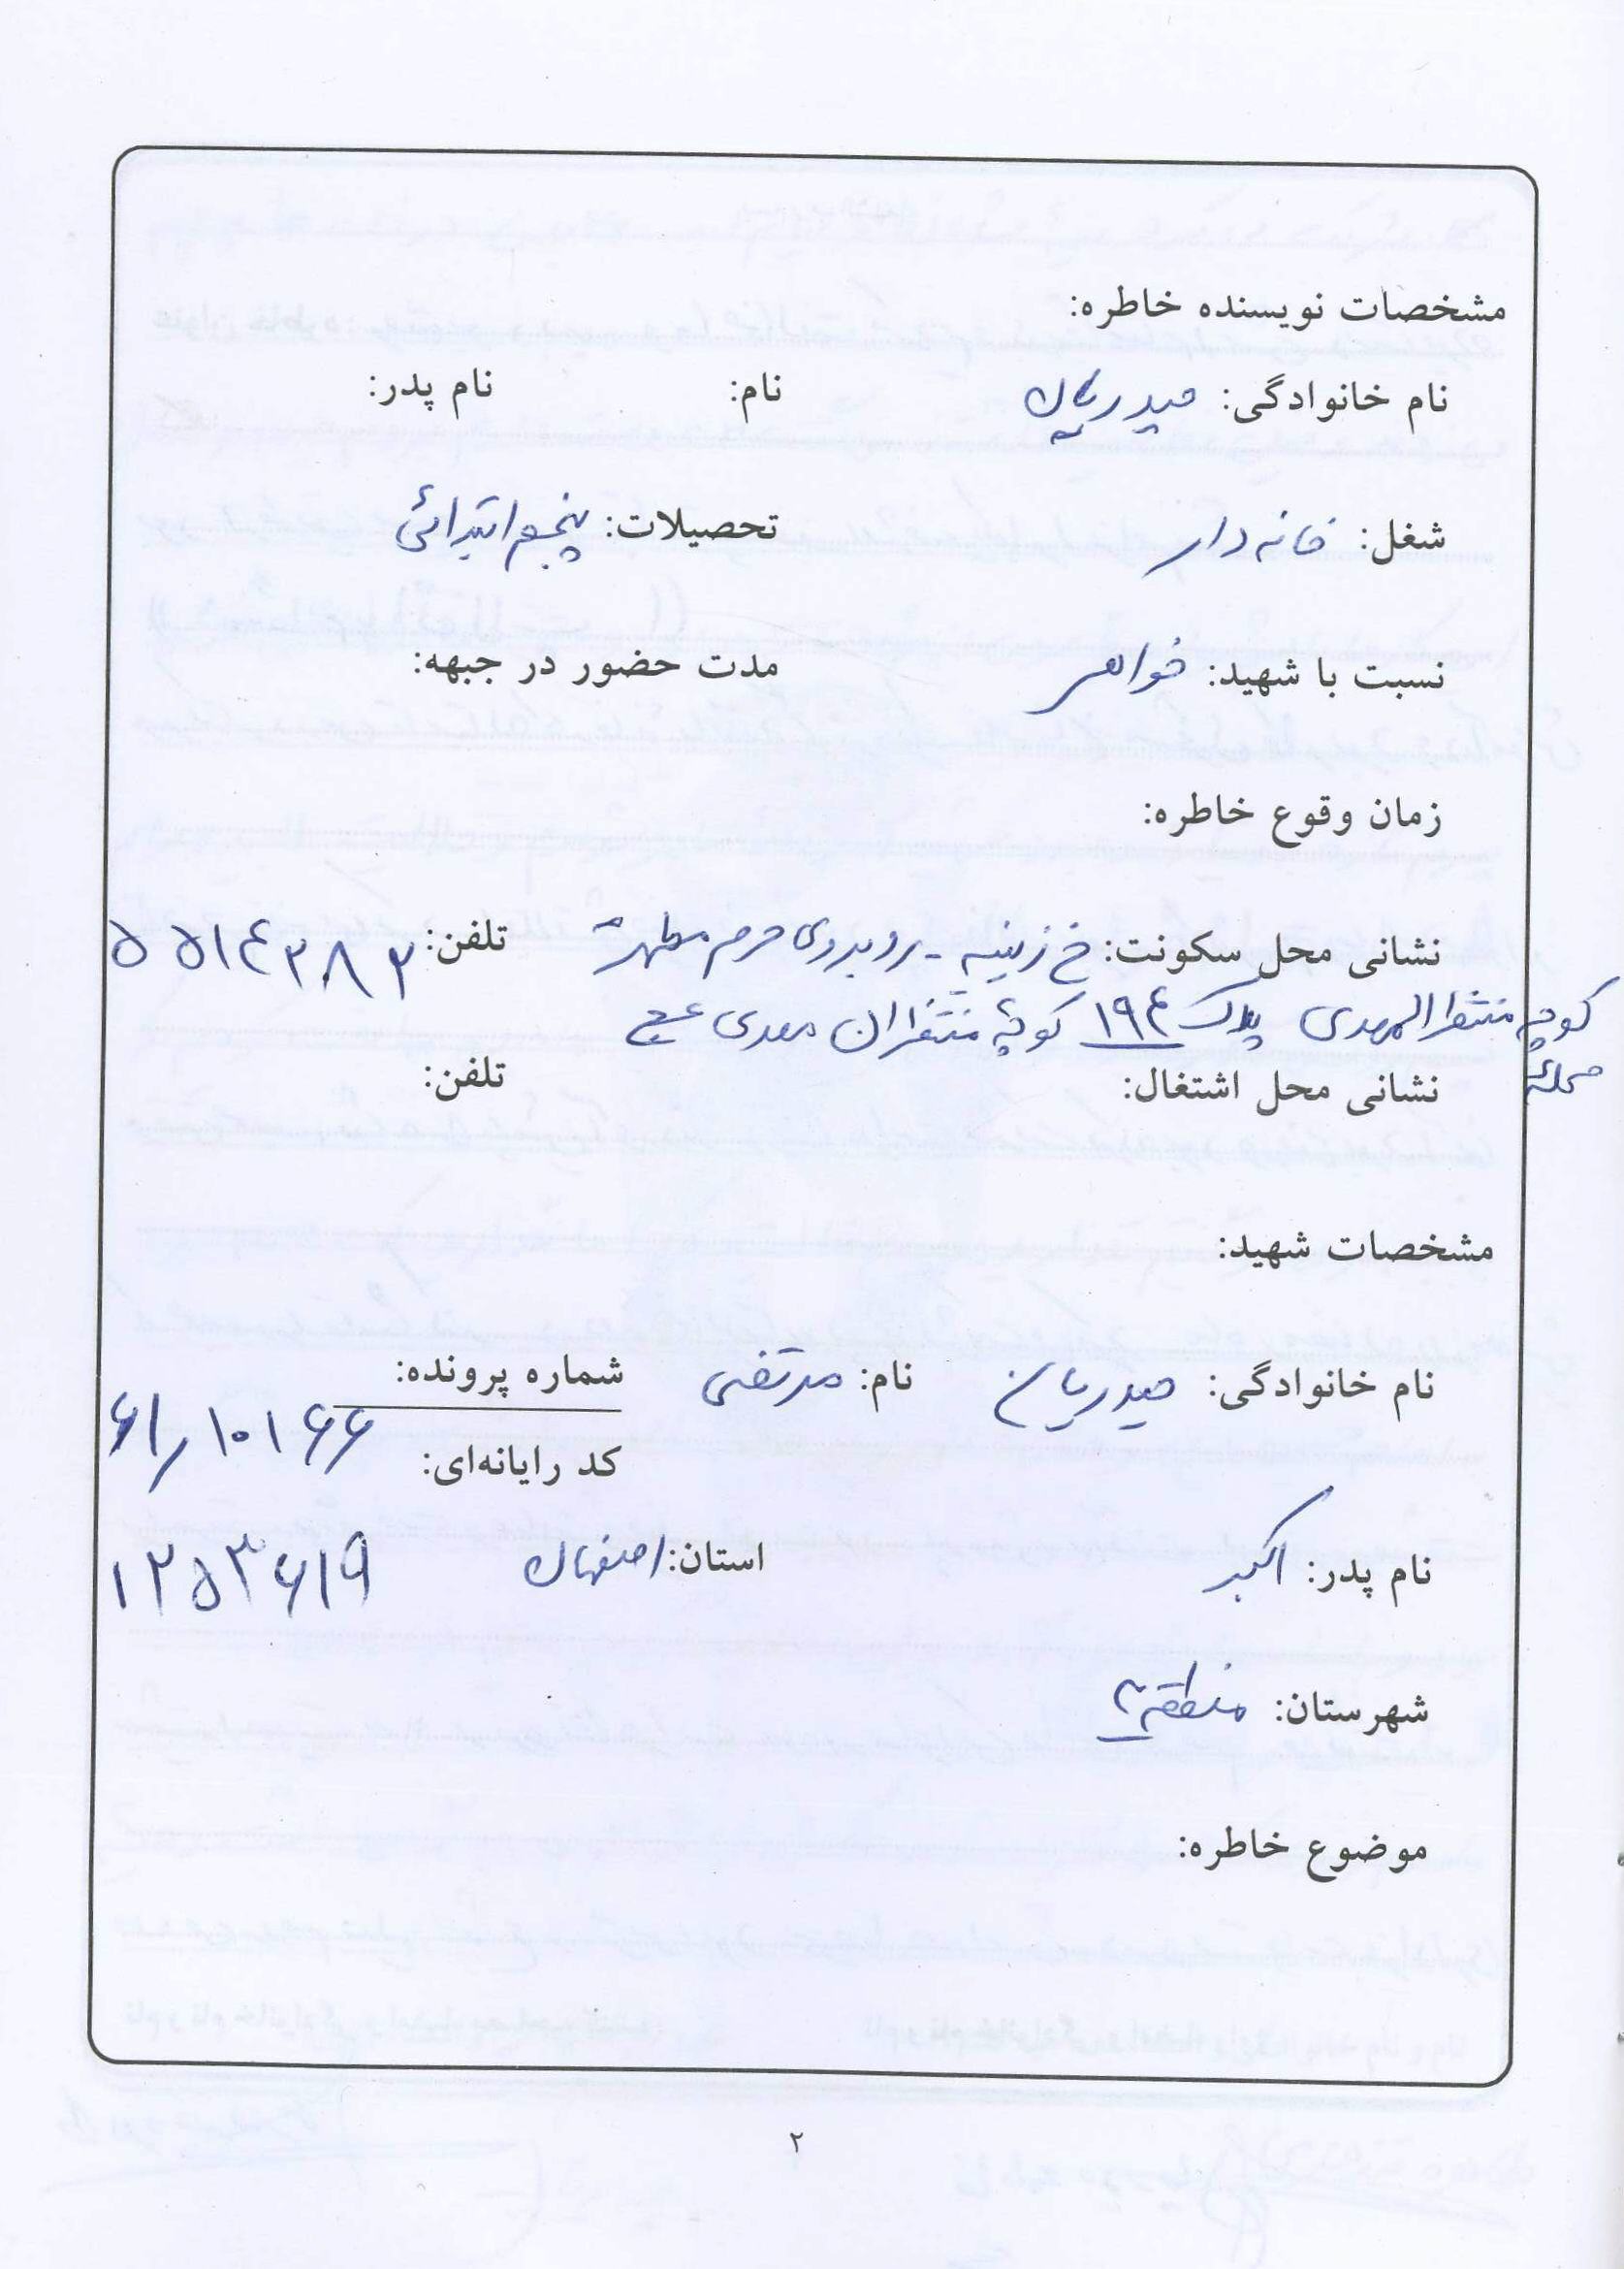 مشخصات نویسنده خاطره:
نام خانوادگی: حیدریان نام: نام پدر:
شغل: خانه دار تحصیلات: پنجم ابتدائی
نسبت با شهید: خواهر مدت حضور در جبهه:
زمان وقوع خاطره:
نشانی محل سکونت: خ زینبیه - روبروی حرم مطهر تلفن: ۵۵۱۴۳۸۳
کوچه منتظرالمهدی پلاک ۱۹۴ کوچه منتظران مهدی عج
محله
نشانی محل اشتغال: تلفن:
مشخصات شهید:
نام خانوادگی: حیدریان نام: مرتضی شماره پرونده:
۶۱/۱۰۱۶۶
کد رایانه‌ای:
نام پدر: اکبر استان: اصفهان ۱۲۵۳۶۱۹
شهرستان: منطقه ۲
موضوع خاطره:
۲